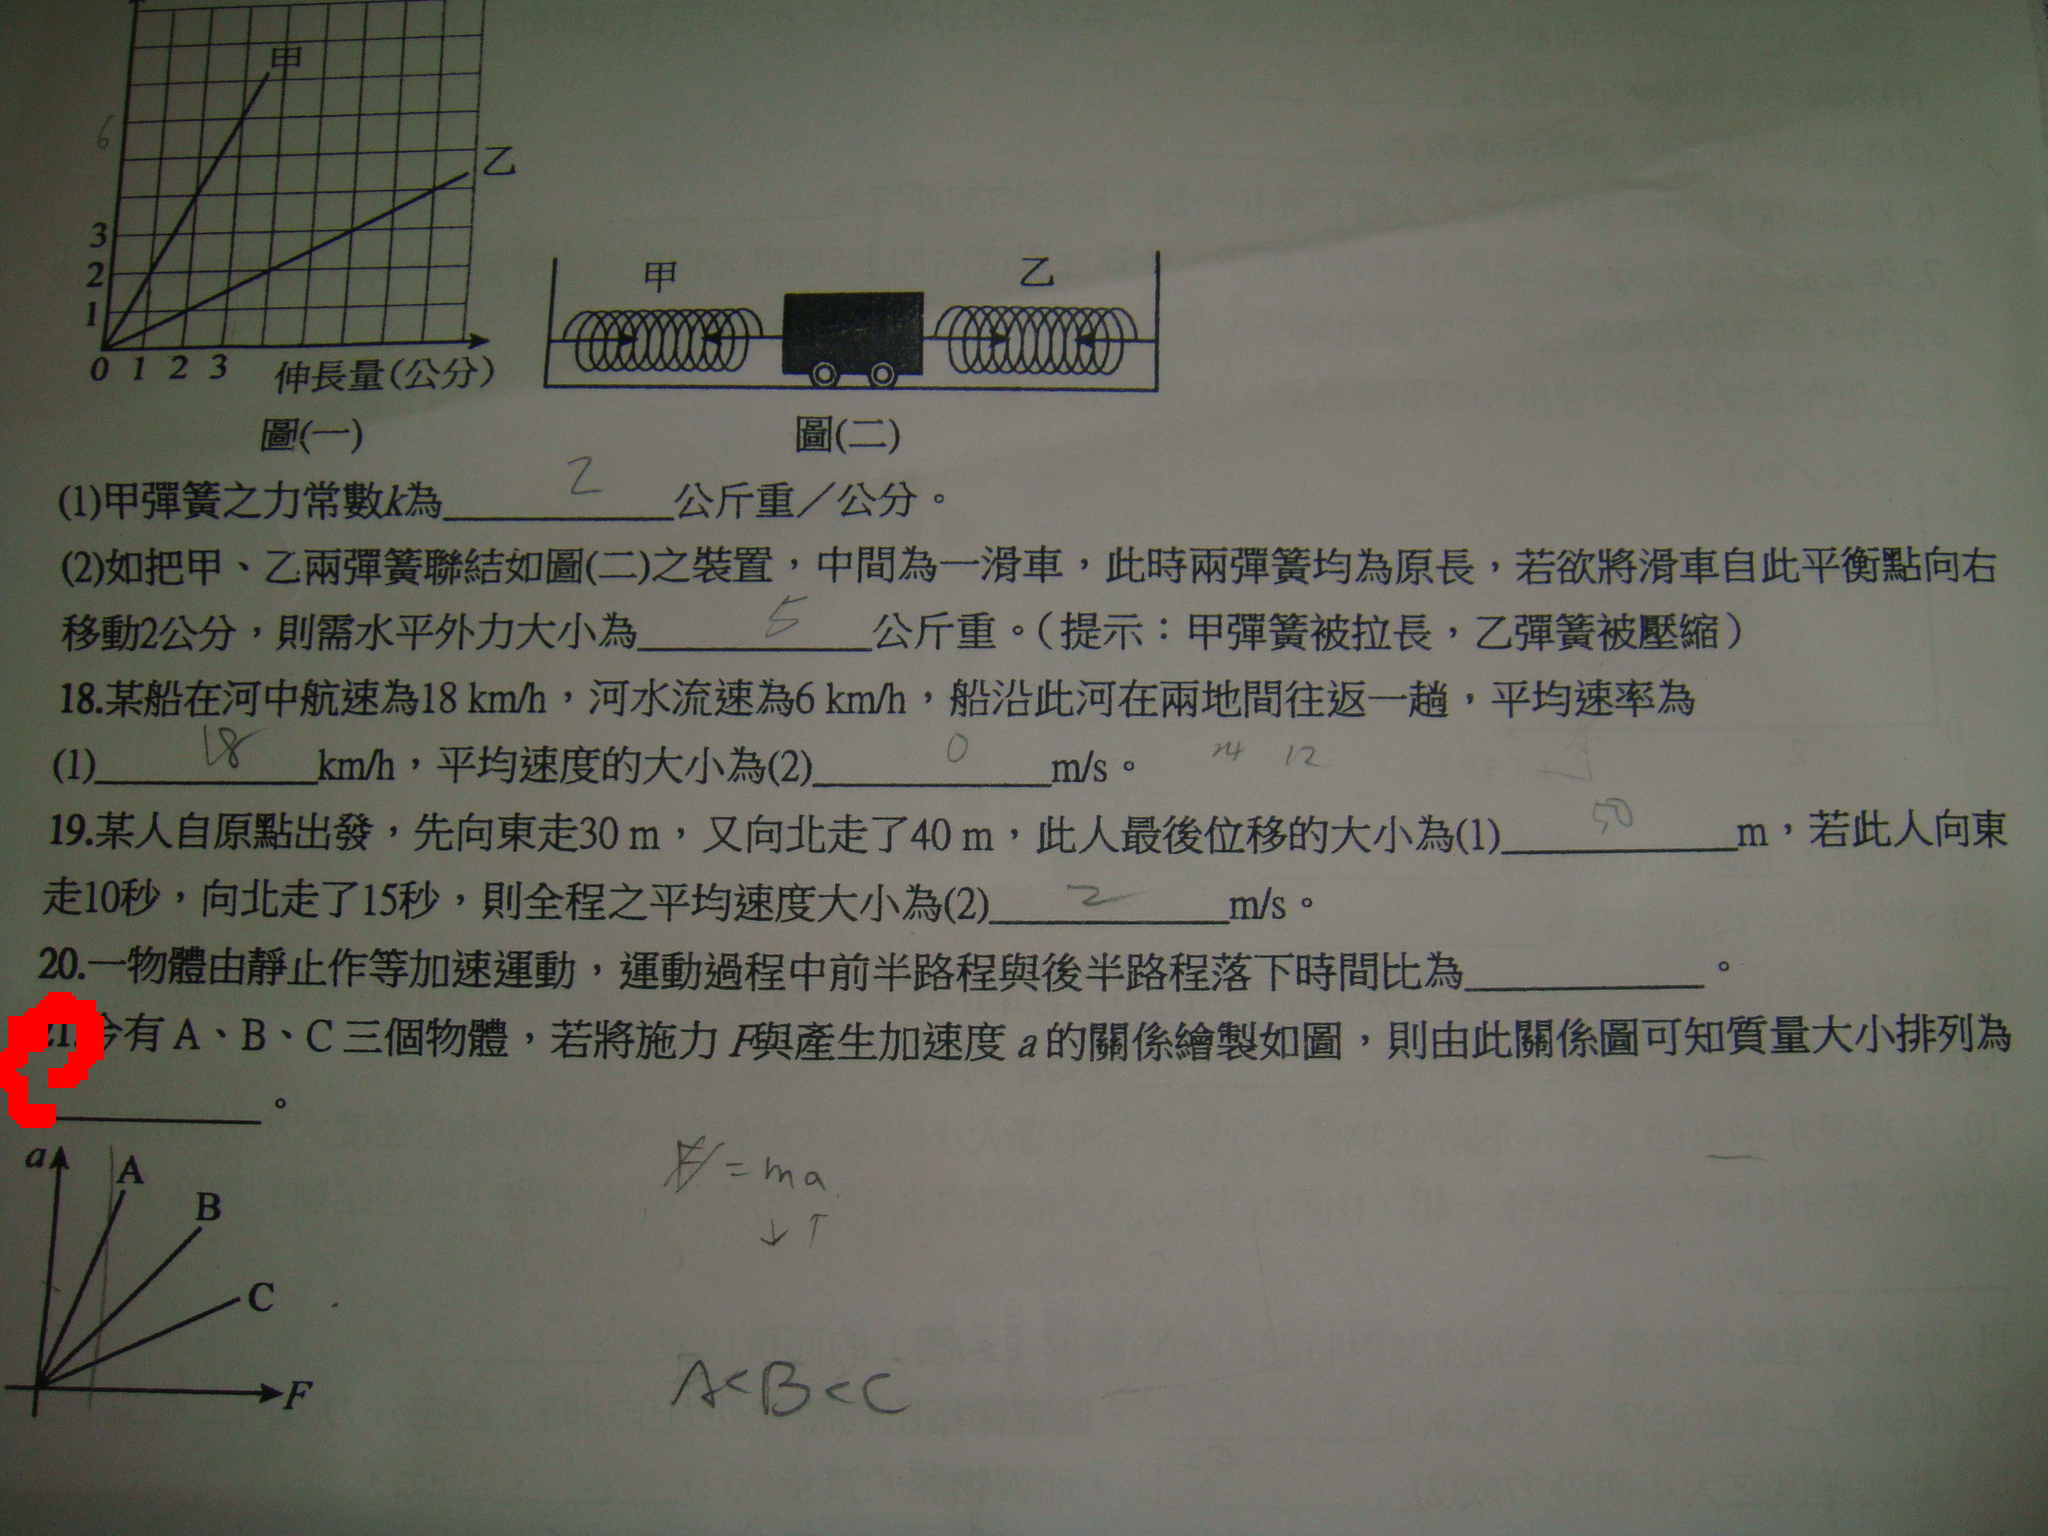 甲
6
乙
3
2
1
0 1 2 3 伸長量(公分)
甲 乙
圖(一) 圖(二)
(1)甲彈簧之力常數k為 2 公斤重／公分。
(2)如把甲、乙兩彈簧聯結如圖(二)之裝置，中間為一滑車，此時兩彈簧均為原長，若欲將滑車自此平衡點向右
移動2公分，則需水平外力大小為 5 公斤重。(提示：甲彈簧被拉長，乙彈簧被壓縮)
18.某船在河中航速為18 km/h，河水流速為6 km/h，船沿此河在兩地間往返一趟，平均速率為
(1) 18 km/h，平均速度的大小為(2) 0 m/s。 24 12
19.某人自原點出發，先向東走30 m，又向北走了40 m，此人最後位移的大小為(1) 50 m，若此人向東
走10秒，向北走了15秒，則全程之平均速度大小為(2) 2 m/s。
20.一物體由靜止作等加速運動，運動過程中前半路程與後半路程落下時間比為 。
21.今有 A、B、C 三個物體，若將施力 F與產生加速度 a 的關係繪製如圖，則由此關係圖可知質量大小排列為
。
a A
B
C
F
F = ma
↓ ↑
A<B<C